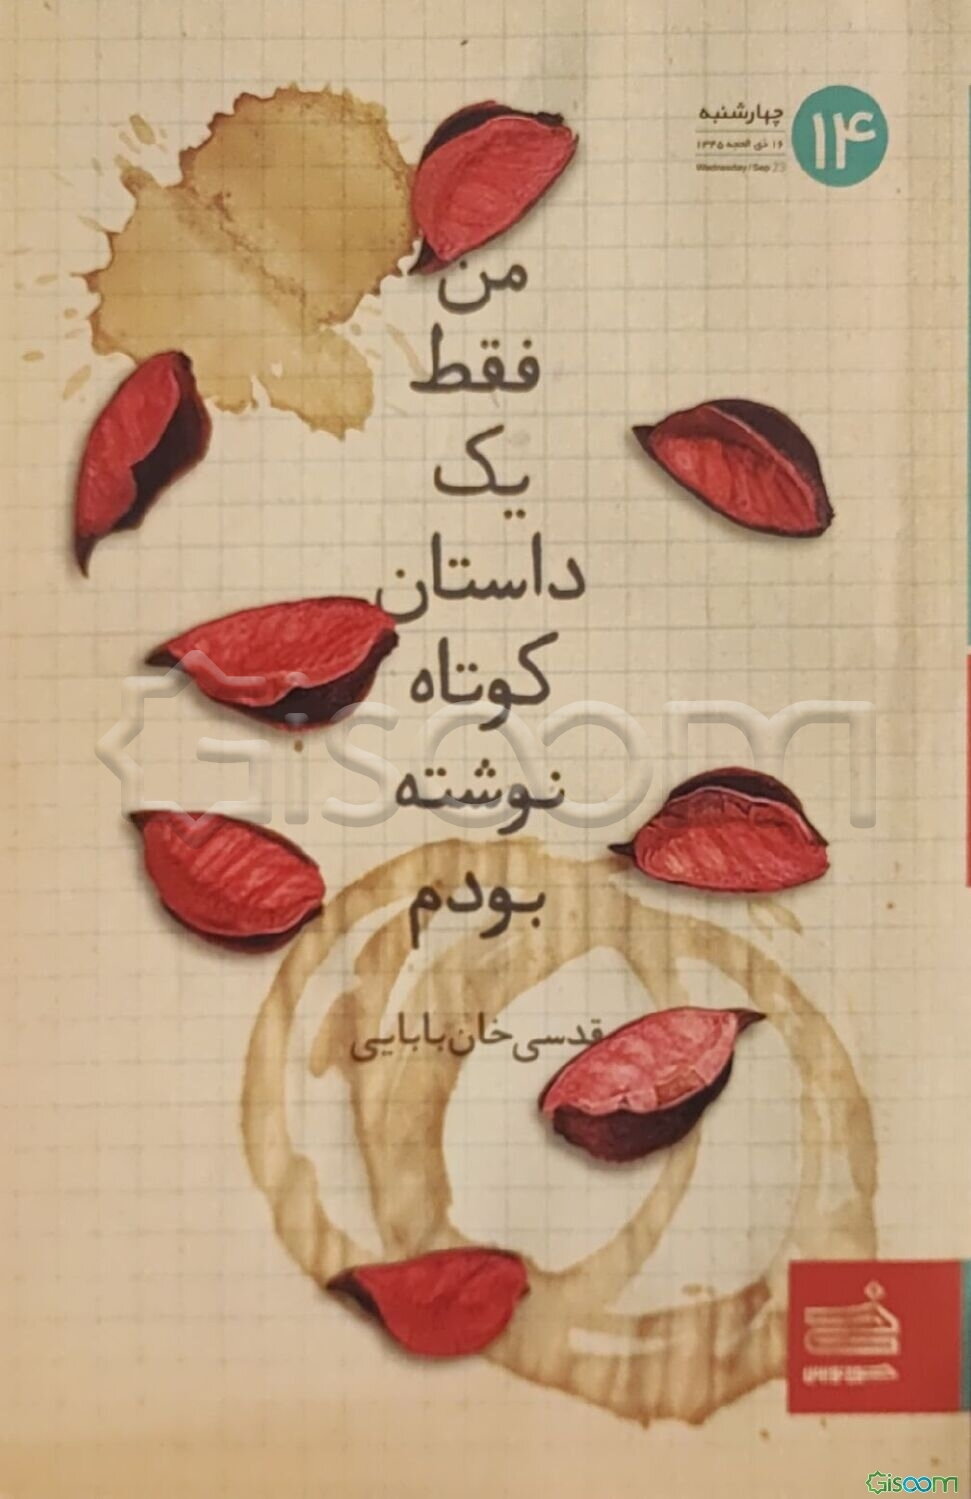 ۱۴
چهارشنبه
۱۶ ذی الحجه ۱۴۴۵
Wednesday / Sep 23
من
فقط
یک
داستان
کوتاه
نوشته
بودم
قدسی خان‌بابایی
Gisoom
Gisoom